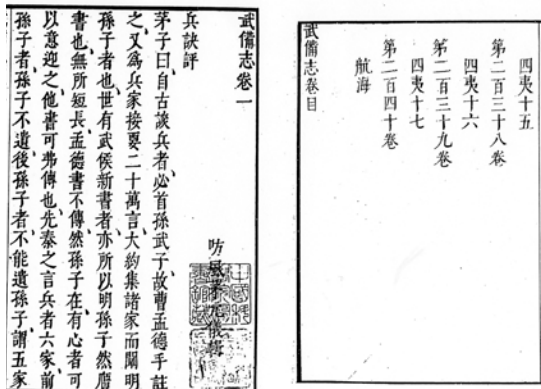 四夷十五
第二百三十八卷
四夷十六
第二百三十九卷
四夷十七
第二百四十卷
航海
武備志卷目
武備志卷一
防風茅元儀輯
兵訣評
茅子曰、自古談兵者、必首孫武子、故曹孟德手註
之、又爲兵家接要二十萬言、大約集諸家而闡明
孫子者也、世有武侯新書者、亦所以明孫子、然贋
書也、無所短長、孟德書不傳、然孫子在、有心者可
以意迎之、他書可弗傳也、先秦之言兵者六家、前
孫子者、孫子不遺、後孫子者、不能遺孫子、謂五家